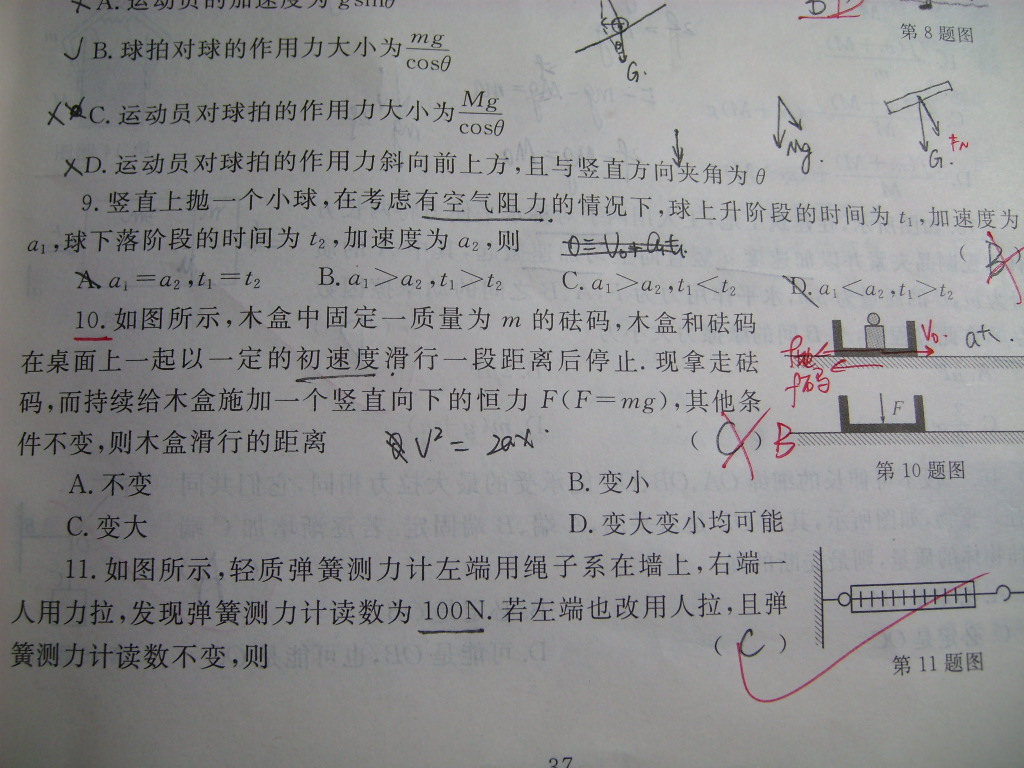 ×A. 运动员的加速度为 gsinθ
第 8 题图
√B. 球拍对球的作用力大小为 mg/cosθ
G.
×C. 运动员对球拍的作用力大小为 Mg/cosθ
mg.
G. FN
×D. 运动员对球拍的作用力斜向前上方,且与竖直方向夹角为 θ
9. 竖直上抛一个小球,在考虑有空气阻力的情况下,球上升阶段的时间为 t₁,加速度为
a₁,球下落阶段的时间为 t₂,加速度为 a₂,则 ( B )
A. a₁=a₂,t₁=t₂ B. a₁>a₂,t₁>t₂ C. a₁>a₂,t₁<t₂ D. a₁<a₂,t₁>t₂
10. 如图所示,木盒中固定一质量为 m 的砝码,木盒和砝码
V₀
在桌面上一起以一定的初速度滑行一段距离后停止. 现拿走砝
码,而持续给木盒施加一个竖直向下的恒力 F(F=mg),其他条
F
件不变,则木盒滑行的距离 V² = 2ax ( C ) B
第 10 题图
A. 不变 B. 变小
C. 变大 D. 变大变小均可能
11. 如图所示,轻质弹簧测力计左端用绳子系在墙上,右端一
人用力拉,发现弹簧测力计读数为 100N. 若左端也改用人拉,且弹
簧测力计读数不变,则 ( C )
第 11 题图
37